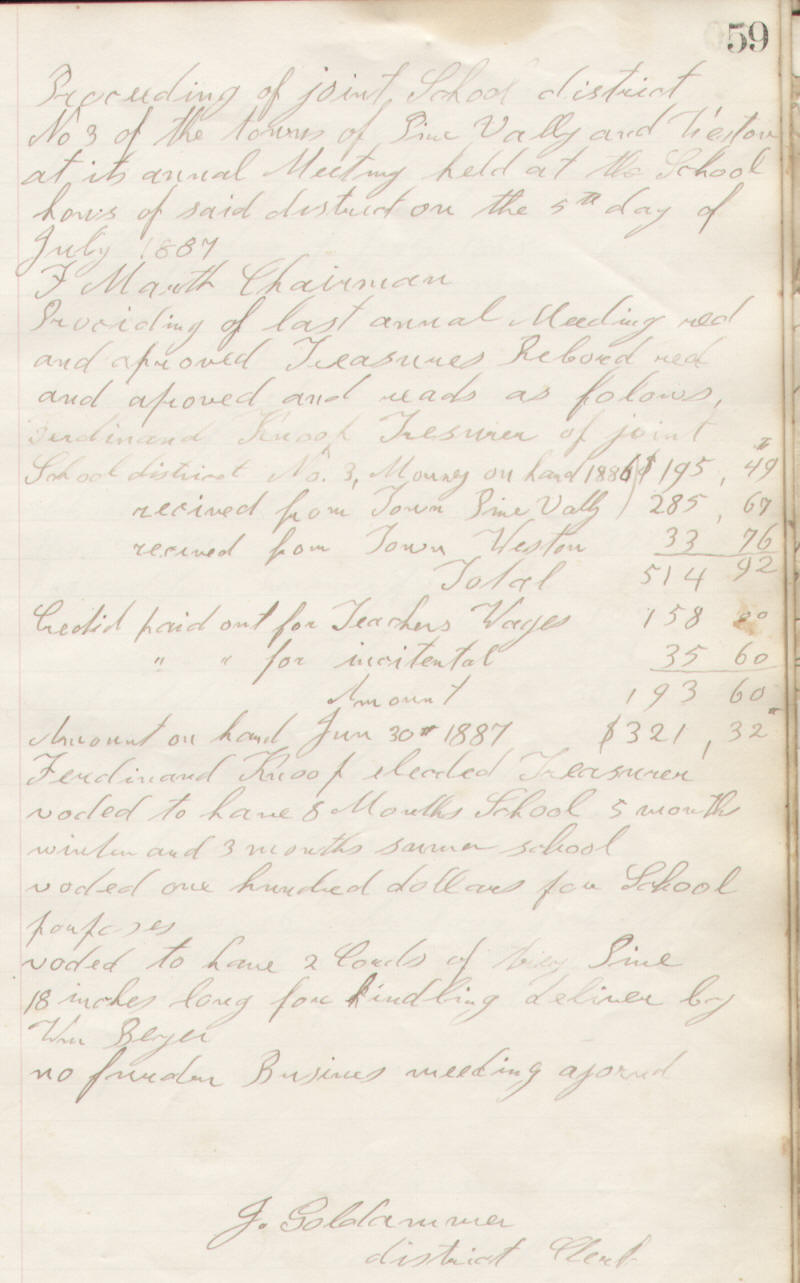 59
Proceeding of joint School district
No 3 of the towns of Pine Vally and Weston
at its annual Meeting held at the School
hous of said district on the 5th day of
July 1887
F Marth Chairman
Provciding of last annual Meeding red
and aproved Treasures Rebord red
and aproved and reads as folows,
Ferdinand Knoof Tresurer of joint
School district No. 3, Monney on hand 1886 $195, 49
recived from Town Pine Vally 285, 67
recived from Town Weston 33 76
Total 514 92
Credid paid out for Teachers Wages 158 00
" " for incitental 35 60
Amount 193 60
Amount on hand Jun 30th 1887 $321, 32
Ferdinand Knoof elecded Treasurer
voded to have 8 Months School 5 months
winter and 3 months sumer school
voded one hundred dollars for School
porposes
voded to have 2 Cords of Pine
18 inches long for kindling deliver by
Wm Beyer
no furder Busines meeding ajorned
J. Goldammer
district Clerk